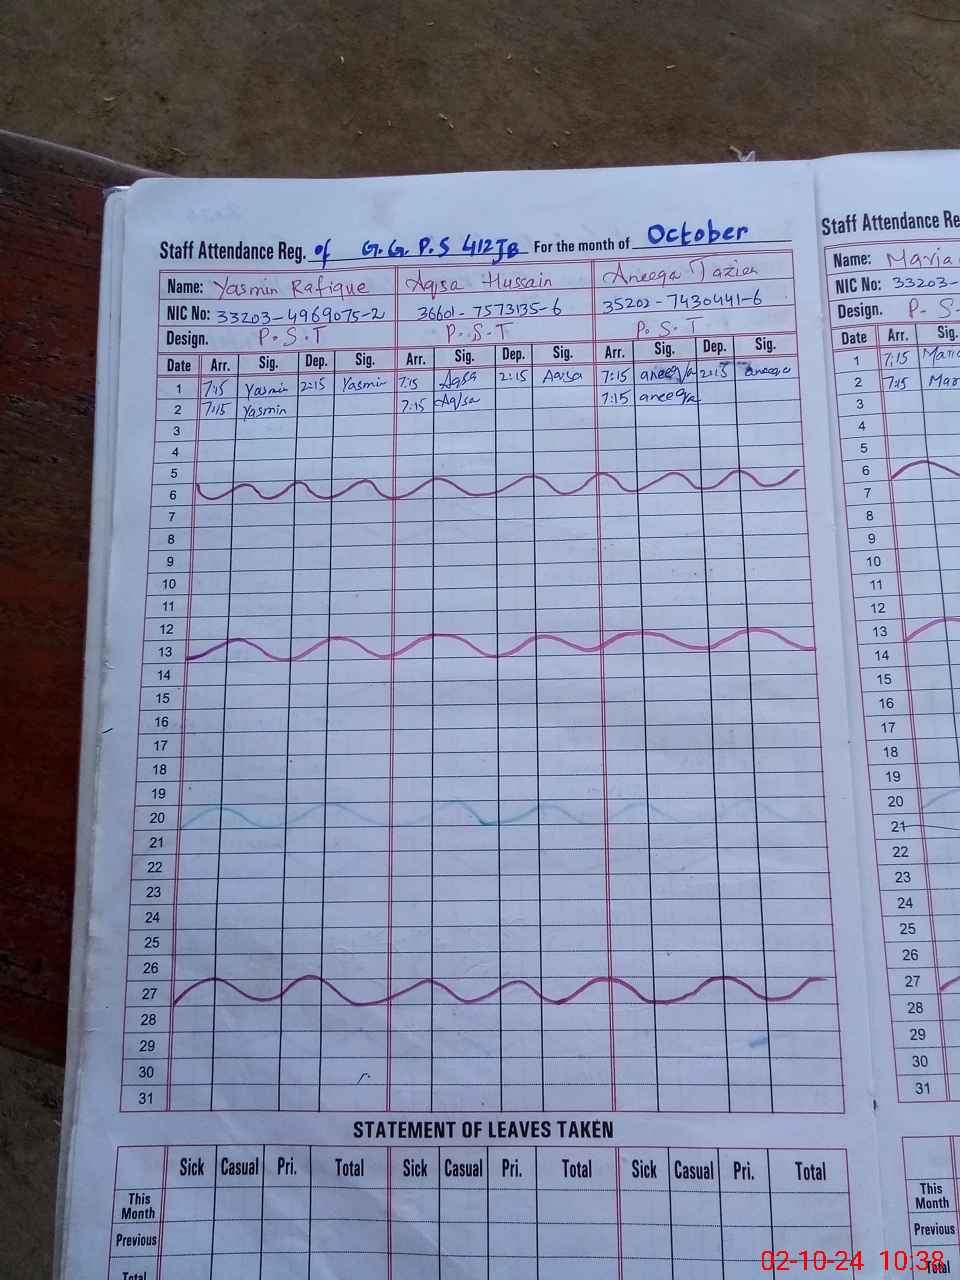 Staff Attendance Reg. of G.G.P.S 412JB For the month of October
Name: Yasmin Rafique Aqsa Hussain Aneeqa Nazien
NIC No: 33203-4969075-2 36601-7573135-6 35202-7430441-6
Design. P.S.T P.S.T P.S.T
Date Arr. Sig. Dep. Sig. Arr. Sig. Dep. Sig. Arr. Sig. Dep. Sig.
1 7:15 Yasmin 2:15 Yasmin 7:15 Aqsa 2:15 Aqsa 7:15 aneeqa 2:15 aneeqa
2 7:15 Yasmin 7:15 Aqsa 7:15 aneeqa
3
4
5
6
7
8
9
10
11
12
13
14
15
16
17
18
19
20
21
22
23
24
25
26
27
28
29
30
31
STATEMENT OF LEAVES TAKEN
Sick Casual Pri. Total Sick Casual Pri. Total Sick Casual Pri. Total
This
Month
Previous
Total
Staff Attendance Re
Name: Maria
NIC No: 33203-
Design. P-S-
Date Arr. Sig.
1 7:15 Maria
2 7:15 Mar
3
4
5
6
7
8
9
10
11
12
13
14
15
16
17
18
19
20
21
22
23
24
25
26
27
28
29
30
31
This
Month
Previous
Total
02-10-24 10:38